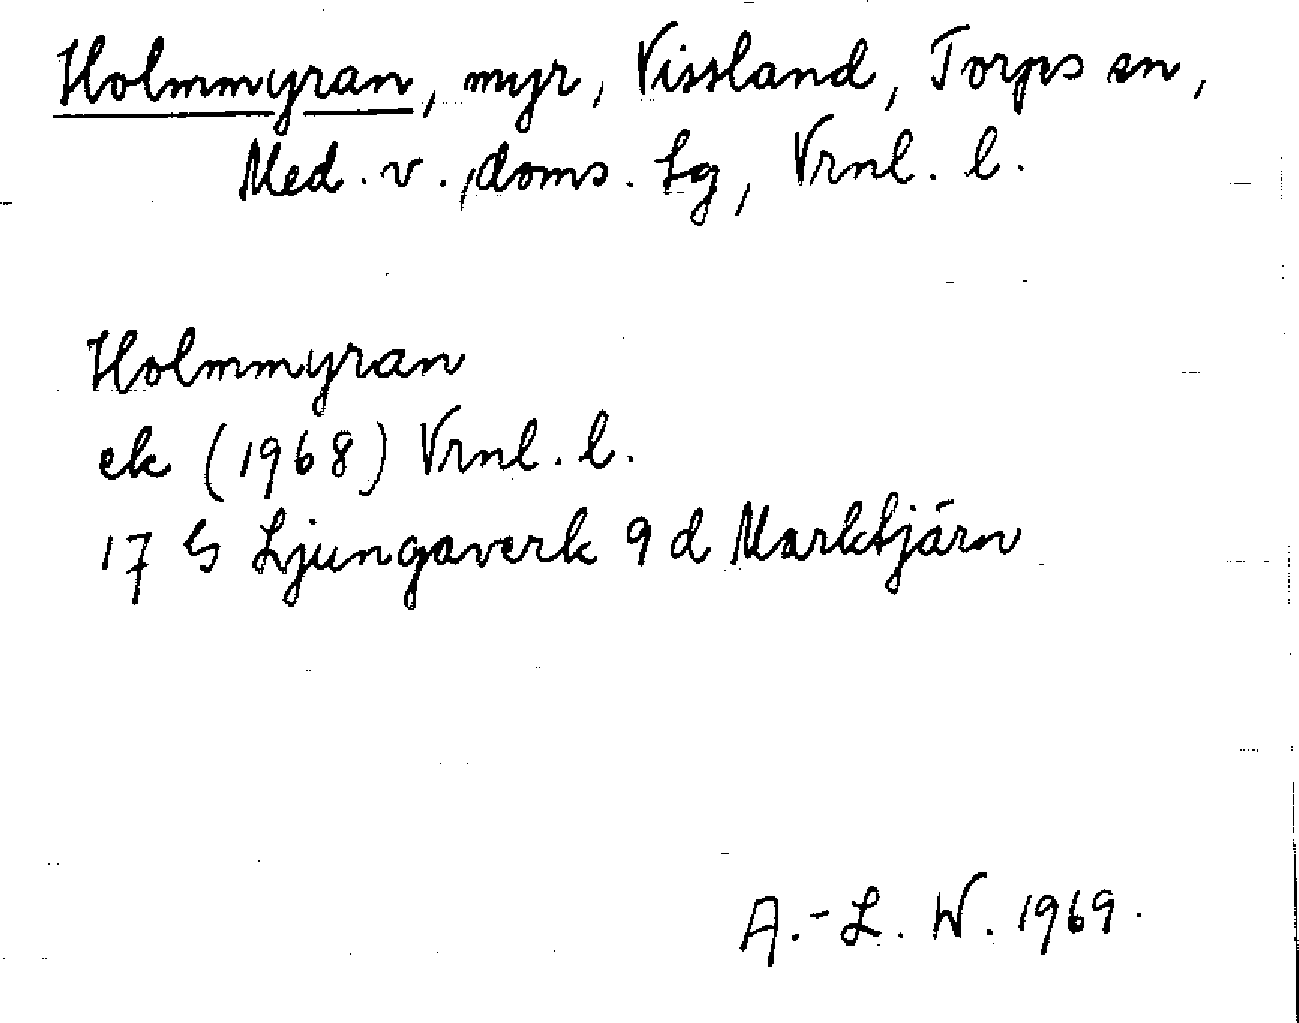 Holmmyran, myr, Vissland, Torps sn,
Med. v., doms. Lg, Vrnl. l.
Holmmyran
ek (1968) Vrnl. l.
17 G Ljungaverk 9 d Marktjärn
A.-L. W. 1969.